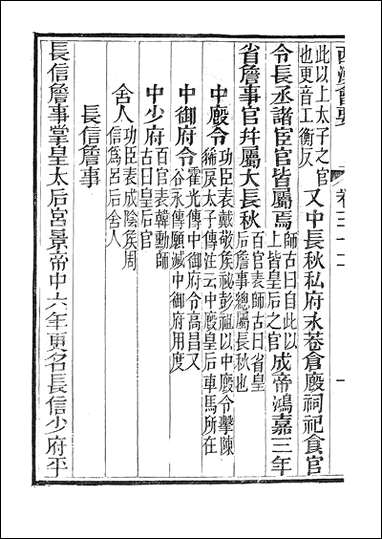 西漢會要 卷三十二 一
此以上太子之官
也更音工衡反
又中長秋私府永巷倉廄祠祀食官
令長丞諸宦官皆屬焉
師古曰自此以
上皆皇后之官
成帝鴻嘉三年
省詹事官幷屬大長秋
百官表師古曰省皇
后詹事總屬長秋也
中廄令
功臣表戴敬矦祕彭祖以中廄令擊陳
豨戾太子傳注云中廄皇后車馬所在
中御府令
霍光傳中御府令高昌又
谷永傳願減中御府用度
中少府
百官表韓勳師
古曰皇后官
舍人
功臣表成陰矦周
信爲呂后舍人
長信詹事
長信詹事掌皇太后宮景帝中六年更名長信少府平